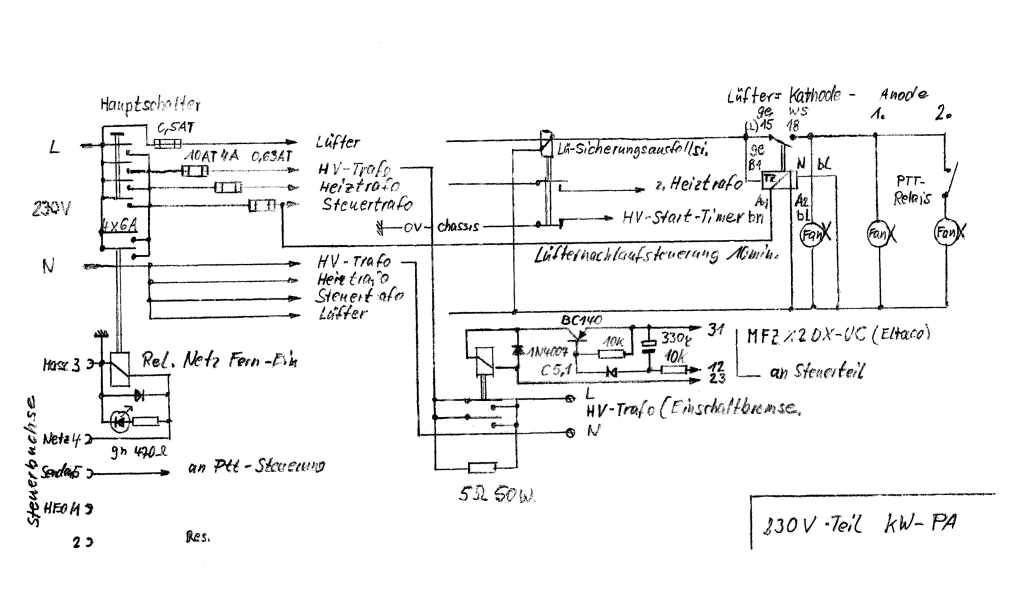 Hauptschalter
L
0,5AT
10AT 4A 0,63AT
230V
4x6A
N
Lüfter
HV-Trafo
Heiztrafo
Steuertrafo
0V - chassis
HV-Trafo
Heiztrafo
Steuertrafo
Lüfter
Lü-Sicherungsausfallsi.
z. Heiztrafo
HV-Start-Timer bn
Lüfternachlaufsteuerung 10min.
Lüfter= Kathode - Anode
ge ws
(L) 15 18
1. 2.
ge
B1
TZ
N bL
A1 A2
bL
PTT-
Relais
Fan Fan Fan
Masse 3
Rel. Netz Fern-Ein
Netz 4
gn 470Ω
an Ptt-Steuerung
2
Res.
Steuerbuchse
BC140
10k
330µ
1N4007
C5,1
10k
31
12
23
MFZ 12DX-UC (Eltaco)
an Steuerteil
L
HV-Trafo (Einschaltbremse.
N
5Ω 50W.
230V-Teil KW-PA